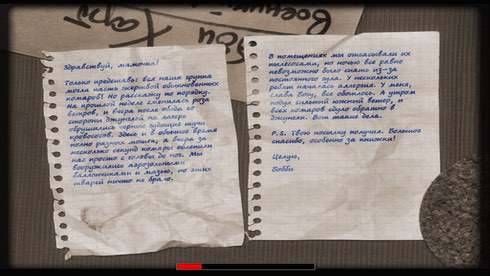 Военны
Здравствуй, мамочка!
Только представь: вся наша группа
могла пасть жертвой обыкновенных
комаров! Но расскажу по порядку.
На прошлой неделе сменилась роза
ветров, и вчера после обеда со
стороны джунглей на лагерь
обрушились чёрные тучи
кровососов. Здесь и в обычное время
полно разных мошек, а вчера за
несколько секунд комары облепили
нас просто с головы до ног. Мы
вооружились аэрозольными
баллончиками и мазью, но этих
тварей ничто не брало.
В помещениях мы отсасывали их
пылесосами, но ночью все равно
невозможно было спать из-за
постоянного гула. У нескольких
ребят началась аллергия. У меня,
слава Богу, все обошлось. А утром
подул сильный южный ветер, и
всех комаров сдуло обратно в
джунгли. Вот такие дела.
P.S. Твою посылку получил. Большое
спасибо, особенно за книжки!
Целую,
Бобби